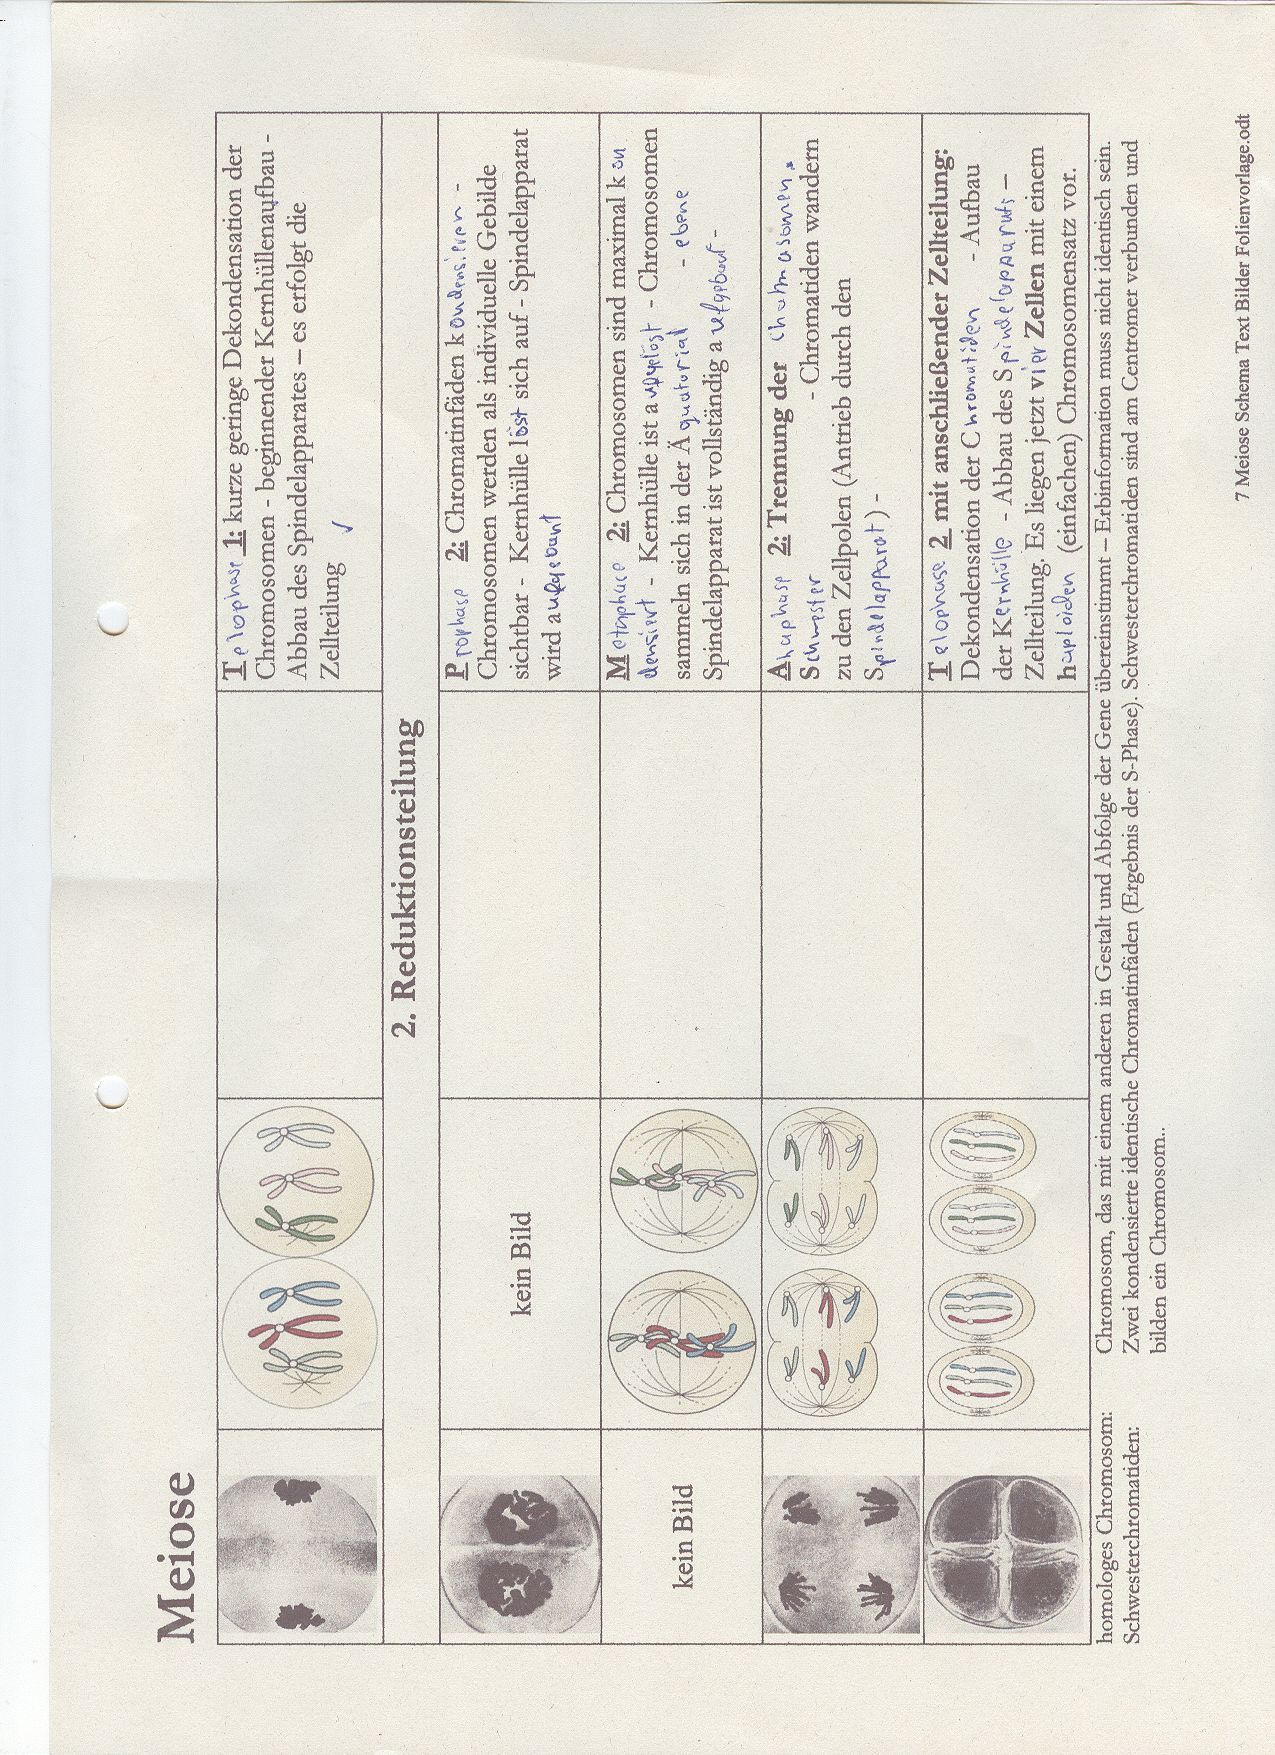 Meiose
Telophase 1: kurze geringe Dekondensation der
Chromosomen - beginnender Kernhüllenaufbau -
Abbau des Spindelapparates – es erfolgt die
Zellteilung ✓
2. Reduktionsteilung
kein Bild
Prophase 2: Chromatinfäden kondensieren -
Chromosomen werden als individuelle Gebilde
sichtbar - Kernhülle löst sich auf - Spindelapparat
wird aufgebaut
kein Bild
Metaphase 2: Chromosomen sind maximal kon
densiert - Kernhülle ist aufgelöst - Chromosomen
sammeln sich in der Äquatorial - ebene
Spindelapparat ist vollständig aufgebaut -
Anaphase 2: Trennung der
Schwester - Chromatiden wandern
zu den Zellpolen (Antrieb durch den
Spindelapparat) -
Telophase 2 mit anschließender Zellteilung:
Dekondensation der Chromatiden - Aufbau
der Kernhülle - Abbau des Spindelapparats –
Zellteilung. Es liegen jetzt vier Zellen mit einem
haploiden (einfachen) Chromosomensatz vor.
homologes Chromosom: Chromosom, das mit einem anderen in Gestalt und Abfolge der Gene übereinstimmt – Erbinformation muss nicht identisch sein.
Schwesterchromatiden: Zwei kondensierte identische Chromatinfäden (Ergebnis der S-Phase). Schwesterchromatiden sind am Centromer verbunden und
bilden ein Chromosom..
7 Meiose Schema Text Bilder Folienvorlage.odt